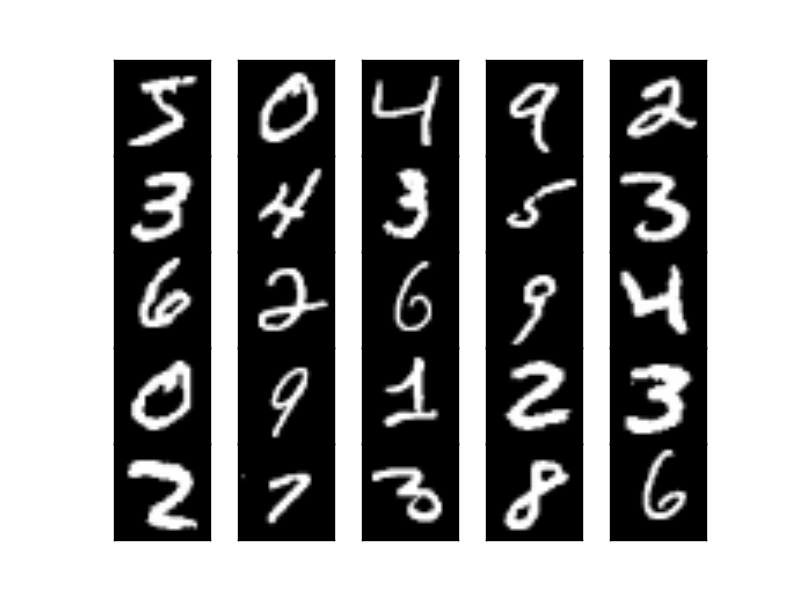 5 0 4 9 2
3 4 3 5 3
6 2 6 9 4
0 9 1 2 3
2 7 3 8 6